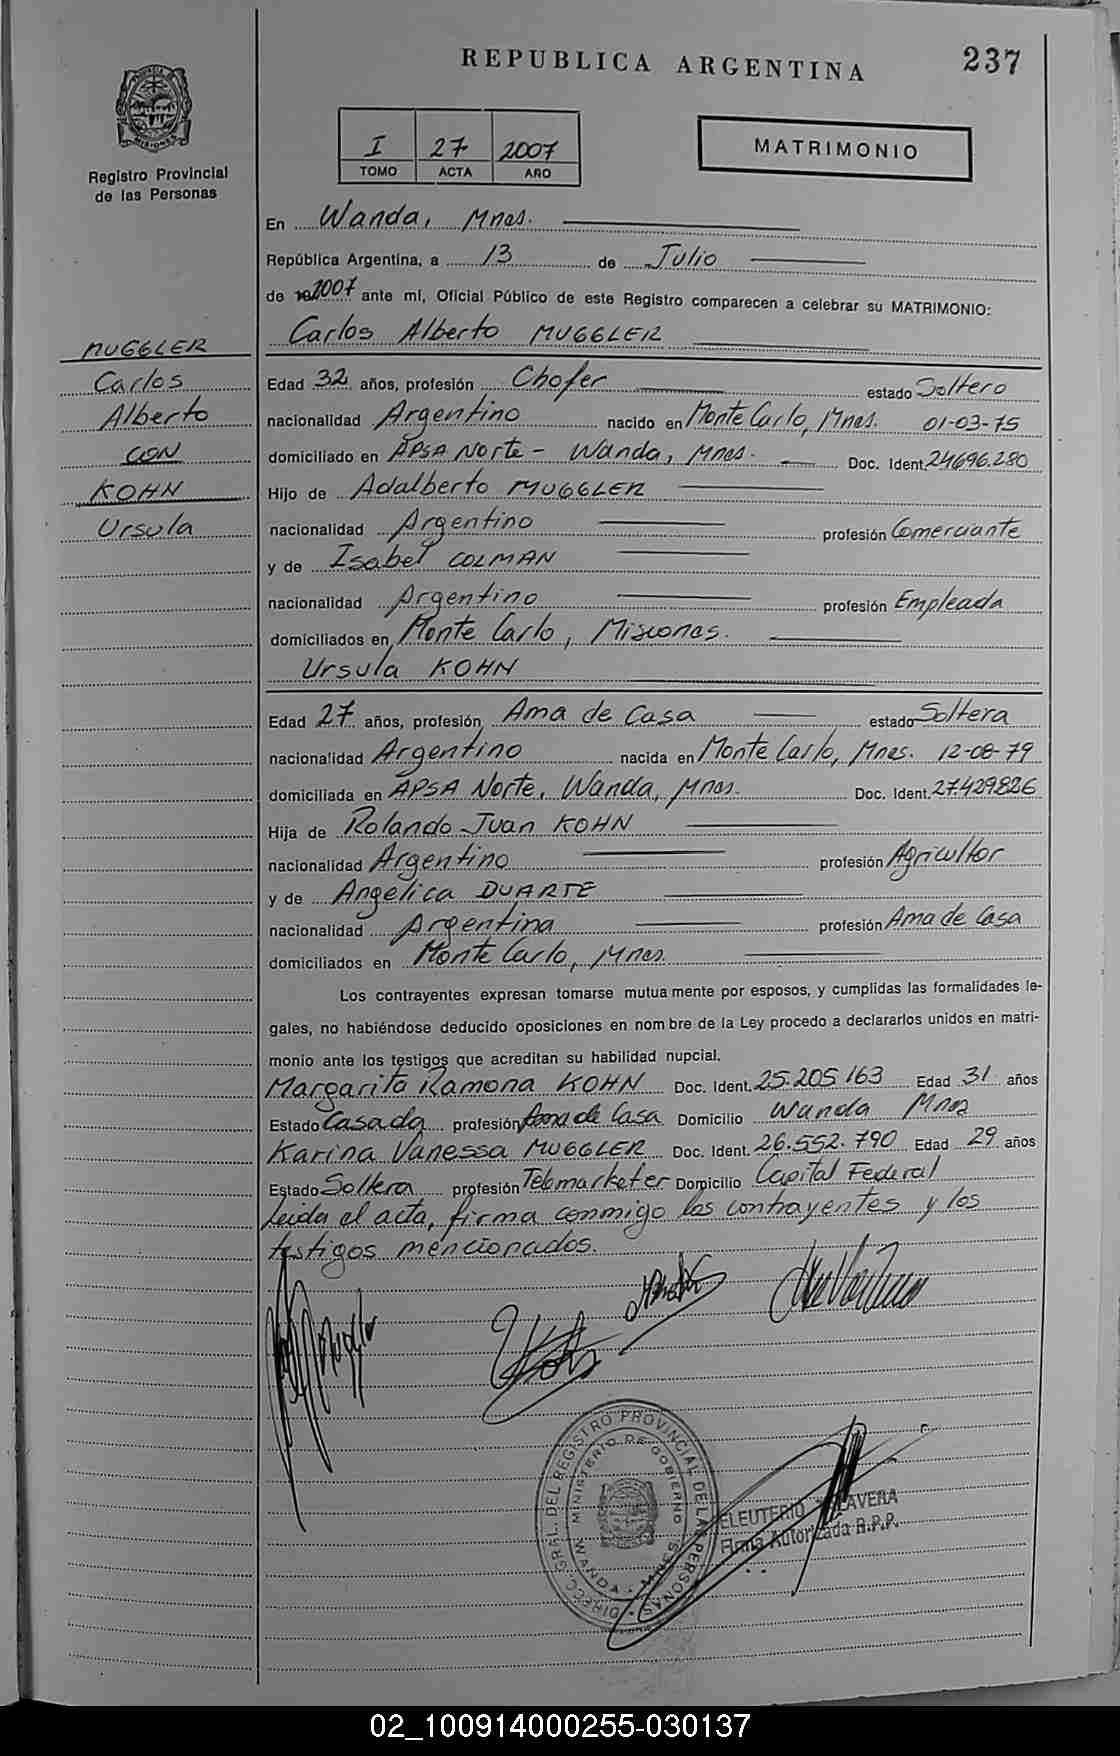 REPUBLICA ARGENTINA
237
MISIONES
Registro Provincial
de las Personas
I 27 2007
TOMO ACTA AÑO
MATRIMONIO
En Wanda, Mnes.
República Argentina, a 13 de Julio
de 2007 ante mí, Oficial Público de este Registro comparecen a celebrar su MATRIMONIO:
Carlos Alberto MUGGLER
MUGGLER
Carlos
Alberto
CON
KOHN
Ursula
Edad 32 años, profesión Chofer estado Soltero
nacionalidad Argentino nacido en Monte Carlo, Mnes. 01-03-75
domiciliado en APSA Norte - Wanda, Mnes. Doc. Ident. 24696.280
Hijo de Adalberto MUGGLER
nacionalidad Argentino profesión Comerciante
y de Isabel COLMAN
nacionalidad Argentino profesión Empleada
domiciliados en Monte Carlo, Misiones.
Ursula KOHN
Edad 27 años, profesión Ama de Casa estado Soltera
nacionalidad Argentino nacida en Monte Carlo, Mnes. 12-08-79
domiciliada en APSA Norte, Wanda, Mnes. Doc. Ident. 27.429826
Hija de Rolando Juan KOHN
nacionalidad Argentino profesión Agricultor
y de Angelica DUARTE
nacionalidad Argentina profesión Ama de Casa
domiciliados en Monte Carlo, Mnes.
Los contrayentes expresan tomarse mutua mente por esposos, y cumplidas las formalidades le-
gales, no habiéndose deducido oposiciones en nom bre de la Ley procedo a declararlos unidos en matri-
monio ante los testigos que acreditan su habilidad nupcial.
Margarita Ramona KOHN Doc. Ident. 25.205 163 Edad 31 años
Estado Casada profesión Ama de Casa Domicilio Wanda Mnes
Karina Vanessa MUGGLER Doc. Ident. 26.552.790 Edad 29 años
Estado Soltera profesión Telemarketer Domicilio Capital Federal
Leida el acta, firma conmigo los contrayentes y los
testigos mencionados.
DIRECC. GRAL. DEL REGISTRO PROVINCIAL DE LAS PERSONAS
MINISTERIO DE GOBIERNO
WANDA - MNES
ELEUTERIO TALAVERA
Firma Autorizada R.P.P.
02_100914000255-030137